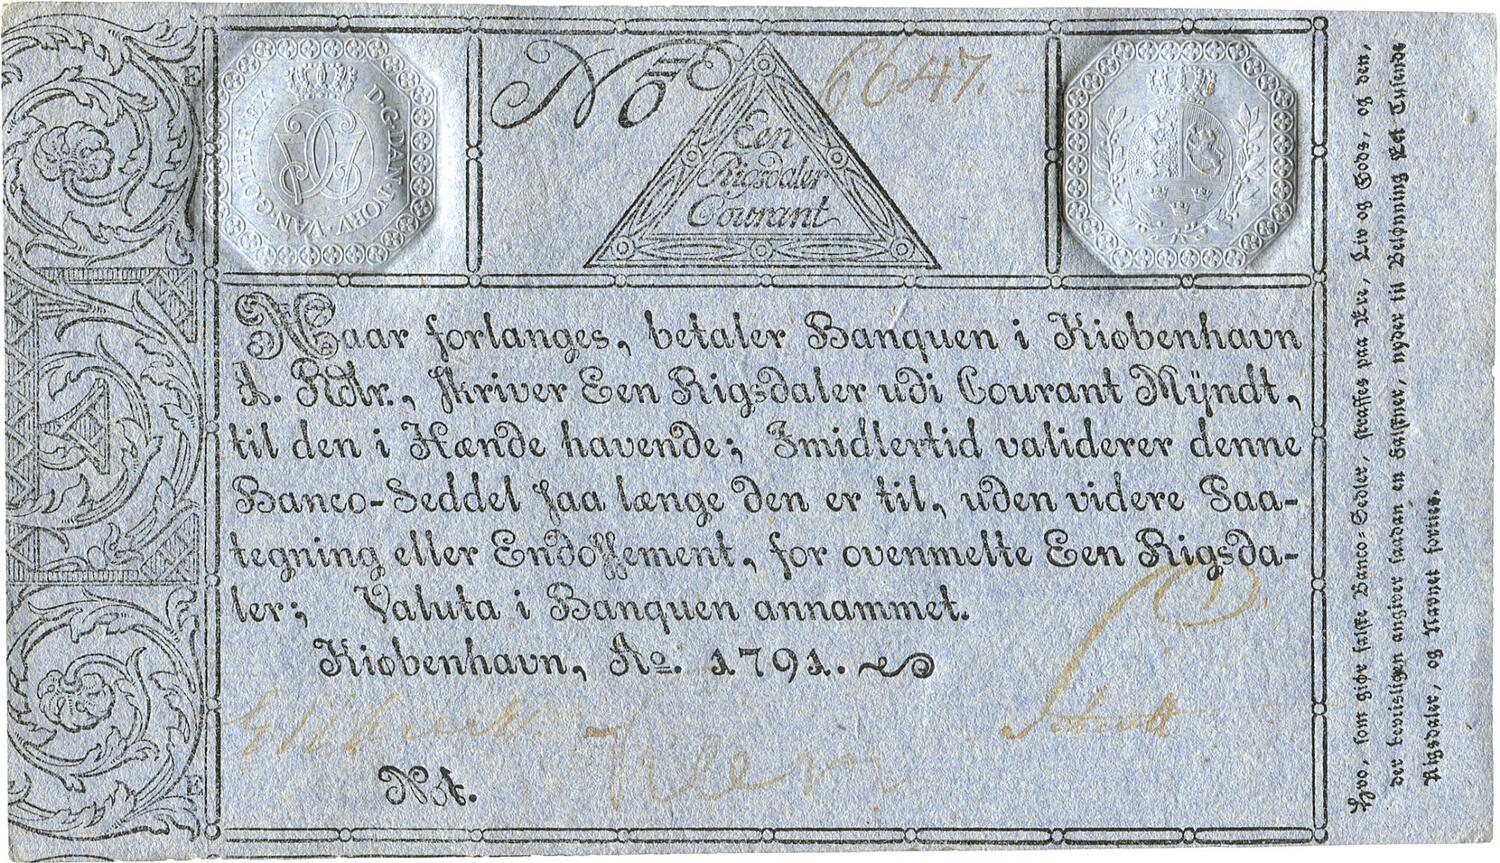 D·G·DAN·NORV·VAN·GOTH·REX
No 6647.
Een
Rigsdaler
Courant
Naar forlanges, betaler Banquen i Kiøbenhavn
A. Rdlr., skriver Een Rigsdaler udi Courant Mÿndt,
til den i Hænde havende; Imidlertid validerer denne
Banco-Seddel saa længe den er til, uden videre Paa-
tegning eller Endossement, for ovenmelte Een Rigsda-
ler; Valuta i Banquen annammet.
Kiøbenhavn, Ao. 1791.
Nst.
Hvo, som giør falske Banco-Sedler, straffes paa Ære, Liv og Gods, og den,
der beviisligen angiver saadan en Falskner, nyder til Belønning Et Tusinde
Rigsdaler, og Navnet forties.